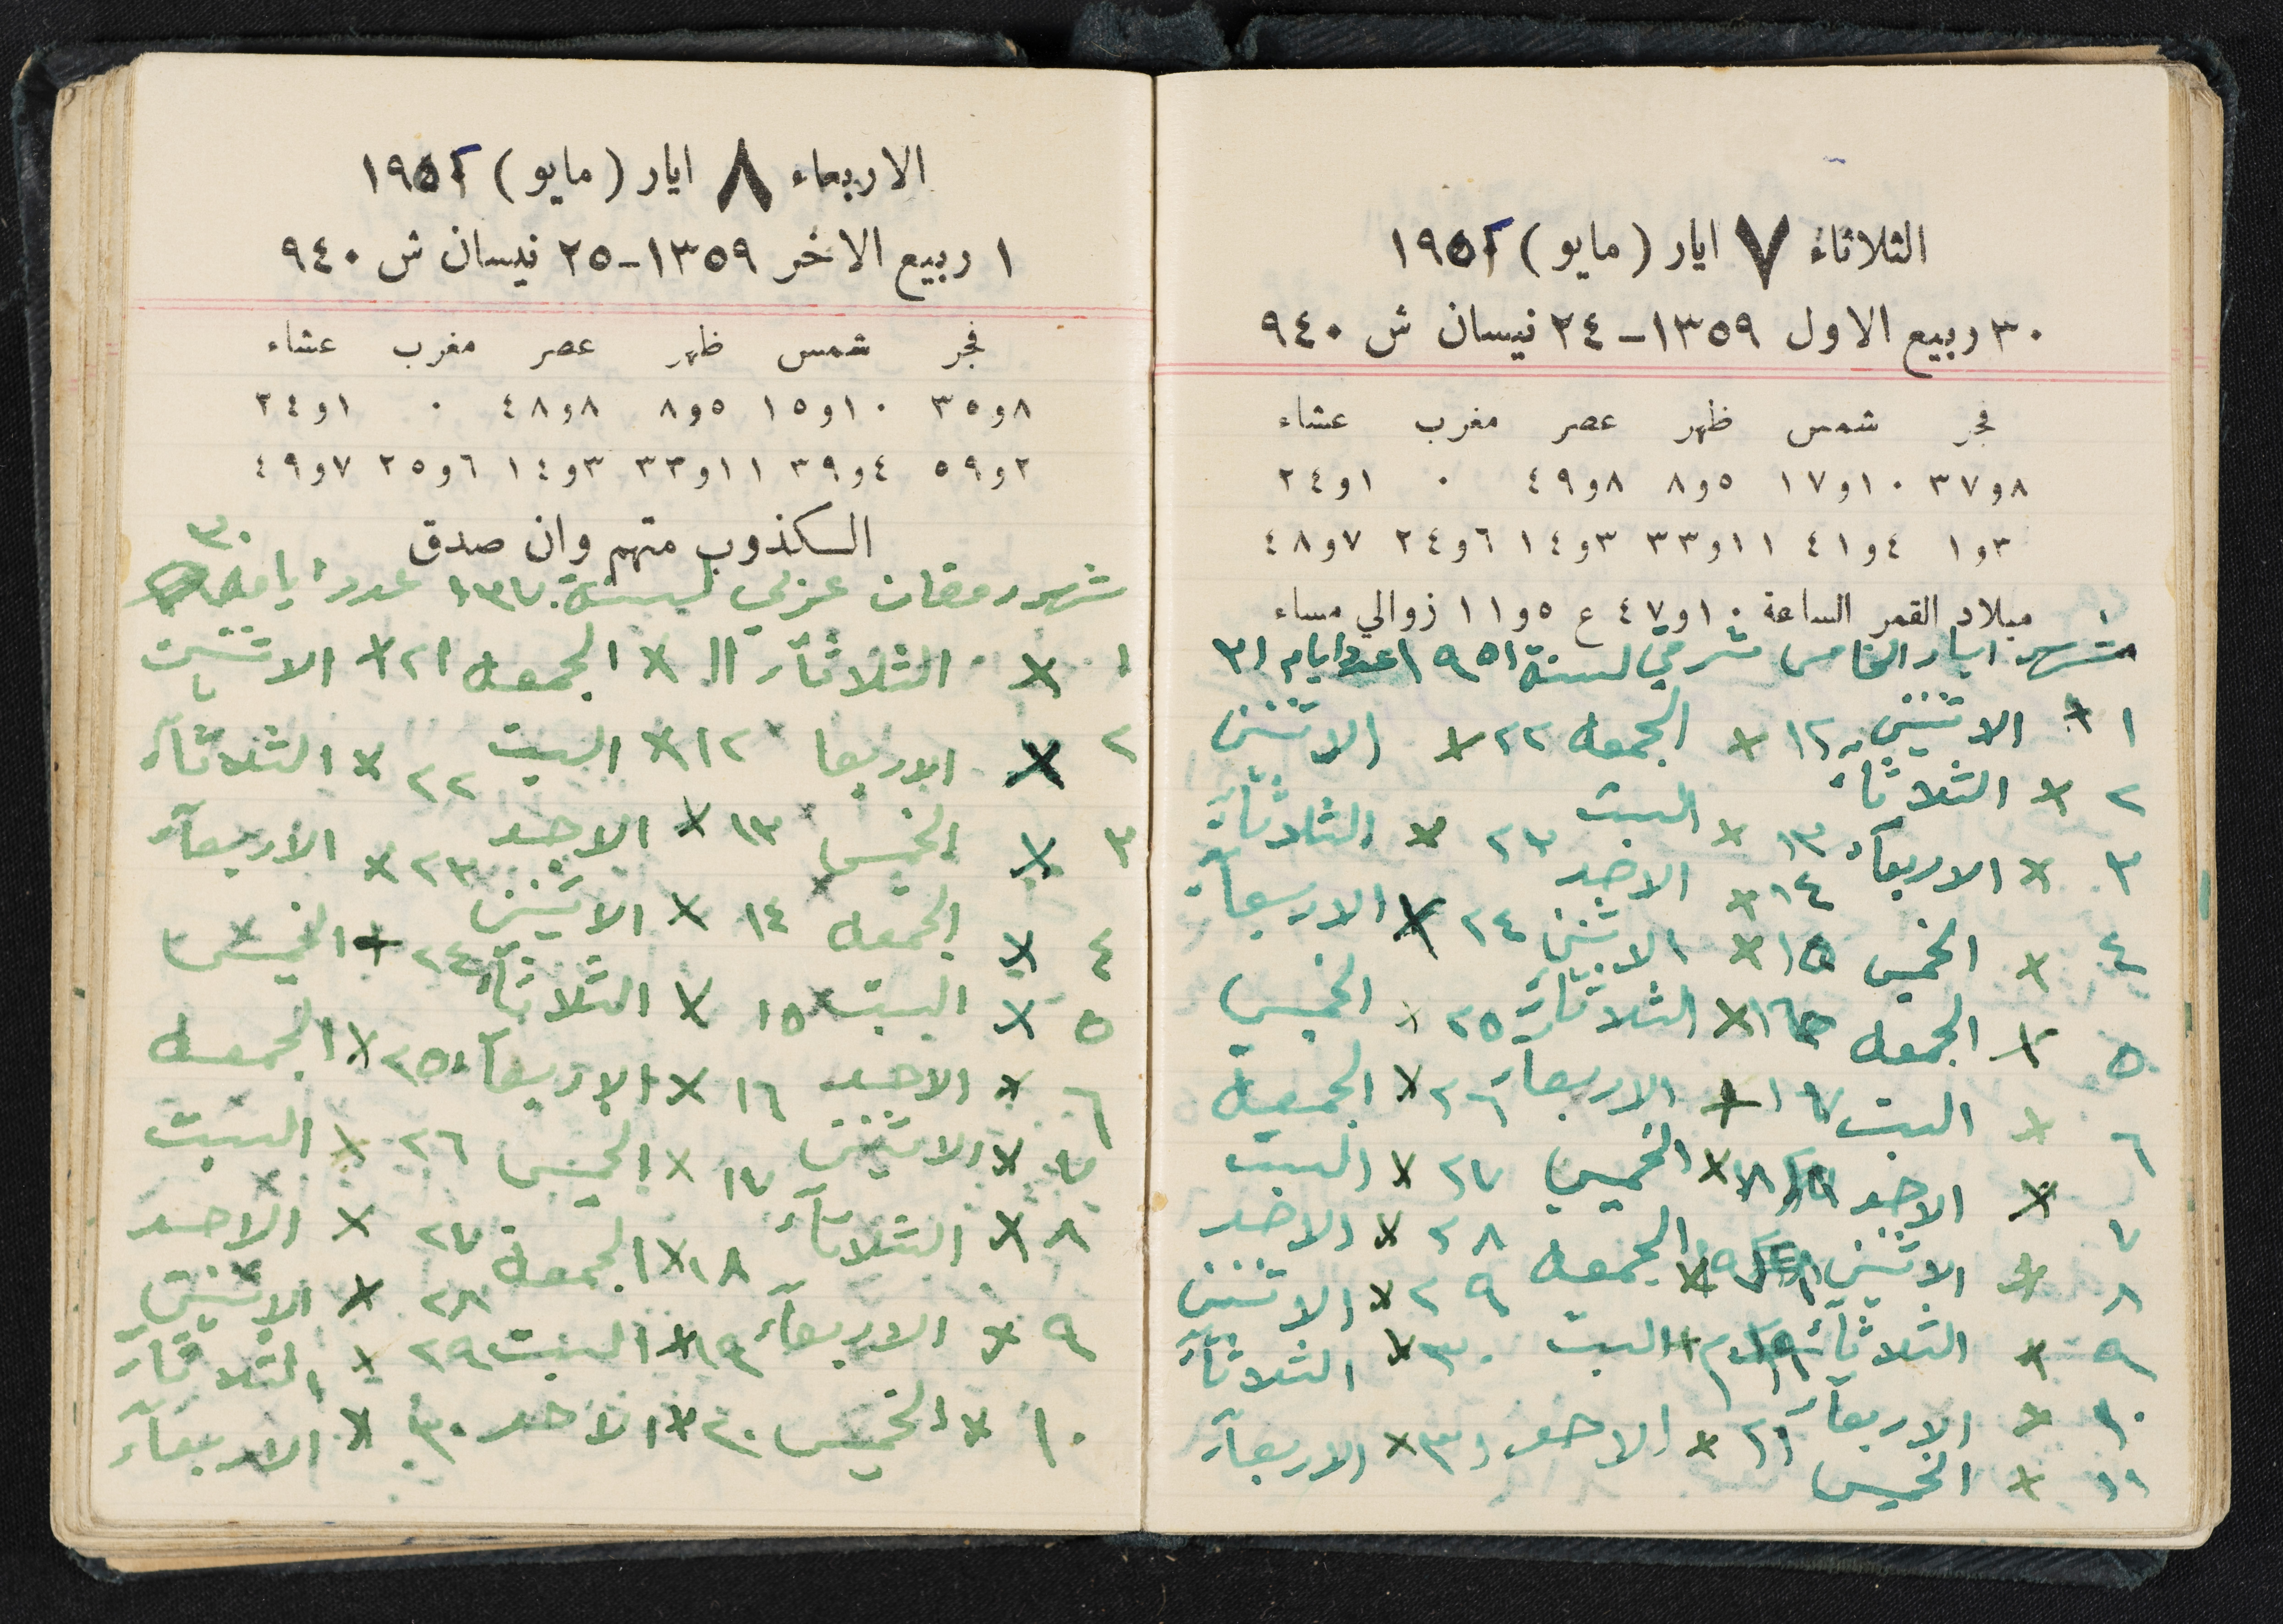 الثلاثاء ٧ ايار (مايو) ١٩٥٢
٣٠ ربيع الاول ١٣٥٩ - ٢٤ نيسان ش ٩٤٠
فجر شمس ظهر عصر مغرب عشاء
٨و٣٧ ١٠و١٧ ٥و٨ ٨و٤٩ ٠ ١و٢٤
٣و١ ٤و٤١ ١١و٣٣ ٣و١٤ ٦و٢٤ ٧و٤٨
ميلاد القمر الساعة ١٠و٤٧ ع ٥و١١ زوالي مساء
شهر ايار الخامس شرقي لسنة ١٩٥١ عدد ايام ٣١
١ × الاثنين ١٢ × الجمعه ٢٢ × الاثنين
٢ × الثلاثاء ١٣ × السبت ٢٣ × الثلاثاء
٣ × الاربعاء ١٤ × الاحد ٢٤ × الاربعاء
٤ × الخميس ١٥ × الاثنين ٢٥ × الخميس
٥ × الجمعه ١٦ × الثلاثاء ٢٦ × الجمعة
٦ × السبت ١٧ × الاربعاء ٢٧ × السبت
٧ × الاحد ١٨ × الخميس ٢٨ × الاحد
٨ × الاثنين ١٩ × الجمعه ٢٩ × الاثنين
٩ × الثلاثاء ٢٠ × السبت ٣٠ × الثلاثاء
١٠ × الاربعاء ٢١ × الاحد ٣١ × الاربعاء
١١ × الخميس
الاربعاء ٨ ايار (مايو) ١٩٥٢
١ ربيع الاخر ١٣٥٩ - ٢٥ نيسان ش ٩٤٠
فجر شمس ظهر عصر مغرب عشاء
٨و٣٥ ١٠و١٥ ٥و٨ ٨و٤٨ ٠ ١و٢٤
٢و٥٩ ٤و٣٩ ١١و٣٣ ٣و١٤ ٦و٢٥ ٧و٤٩
الكذوب متهم وان صدق
شهر رمضان عربي لسنة ١٣٧٠ عدد ايامه ٣٠
١ × الثلاثاء ١١ × الجمعه ٢١ × الاثنين
٢ × الاربعا ١٢ × السبت ٢٢ × الثلاثاء
٣ × الخميس ١٣ × الاحد ٢٣ × الاربعاء
٤ × الجمعه ١٤ × الاثنين ٢٤ × الخميس
٥ × السبت ١٥ × الثلاثاء ٢٥ × الجمعه
٦ × الاحد ١٦ × الاربعاء ٢٦ × السبت
٧ × الاثنين ١٧ × الخميس ٢٧ × الاحد
٨ × الثلاثاء ١٨ × الجمعة ٢٨ × الاثنين
٩ × الاربعاء ١٩ × السبت ٢٩ × الثلاثاء
١٠ × الخميس ٢٠ × الاحد ٣٠ × الاربعاء